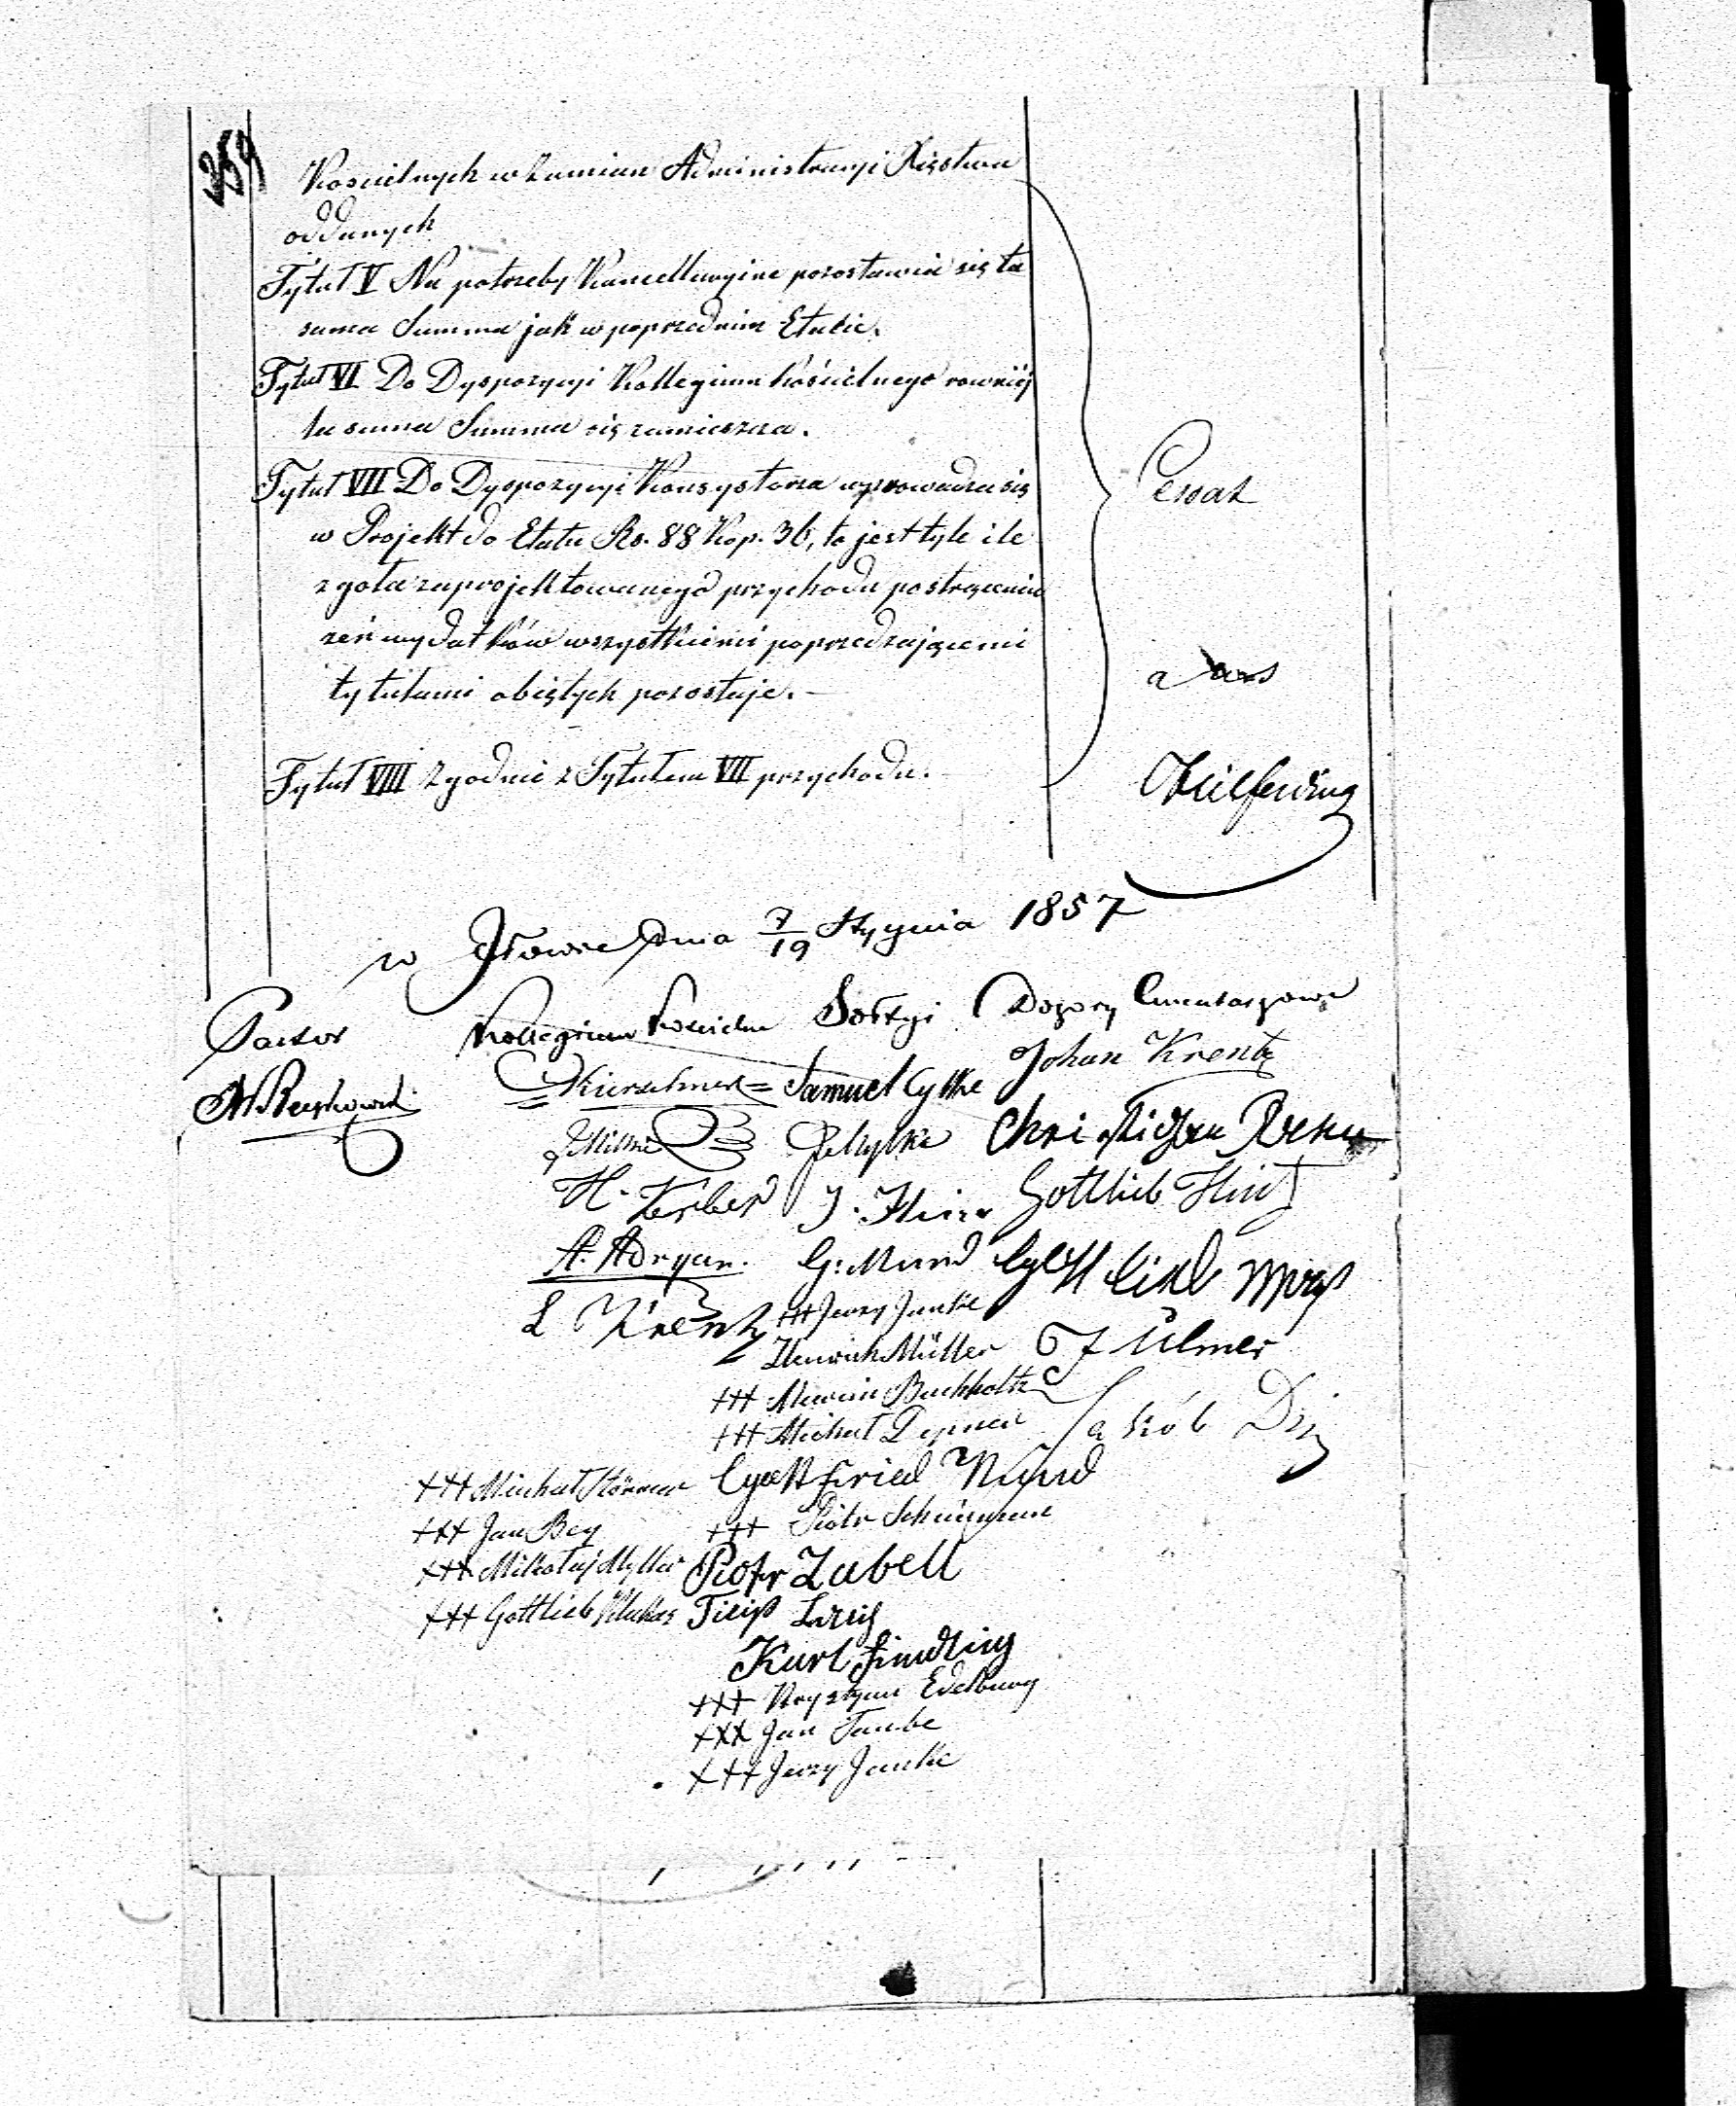 359
Kościelnych w zamian Administracyi Xięstwa
oddanych
Tytuł V Na potrzeby Kancellaryine pozostawia się ta
sama Summa jak w poprzednim Etacie.
Tytuł VI Do Dyspozycyi Kollegium Kościelnego rownież
ta sama Summa się zamieszcza.
Tytuł VII Do Dyspozycyi Konsystorza wprowadza się
w Projekt do Etatu Rs. 88 Kop. 36, to jest tyle ile
z ogółu zaprojektowanego przychodu po strąceniu
zeń wydatków wszystkiemi poprzedzającemi
tytułami objętych pozostaje. –
Tytuł VIII Zgodnie z Tytułem VII przychodu.
Cessat
a
w Iłowie Dnia 7/19 Stycznia 1857
Pastor Kollegium Kościelne Sołtysi Dozory Cmentarzowe
Kierschner Samuel Cytke Johan Krentz
Christian
H. Körber Gottlieb Hint
A. Adryan. G. Mund
L Krentz +++ Jerzy Janke
Heinrich Müller J Ulmer
+++ Marcin Buchholtz
+++ Michał Jakób
+++ Michał Gottfried Mund
+++ Jan Bey +++ Piotr Scheunemann
+++ Mikołaj Myller Piotr Zabell
+++ Gottlieb Filip
Karl
+++ Krystyan Edelburg
+++ Jan Taube
+++ Jerzy Janke